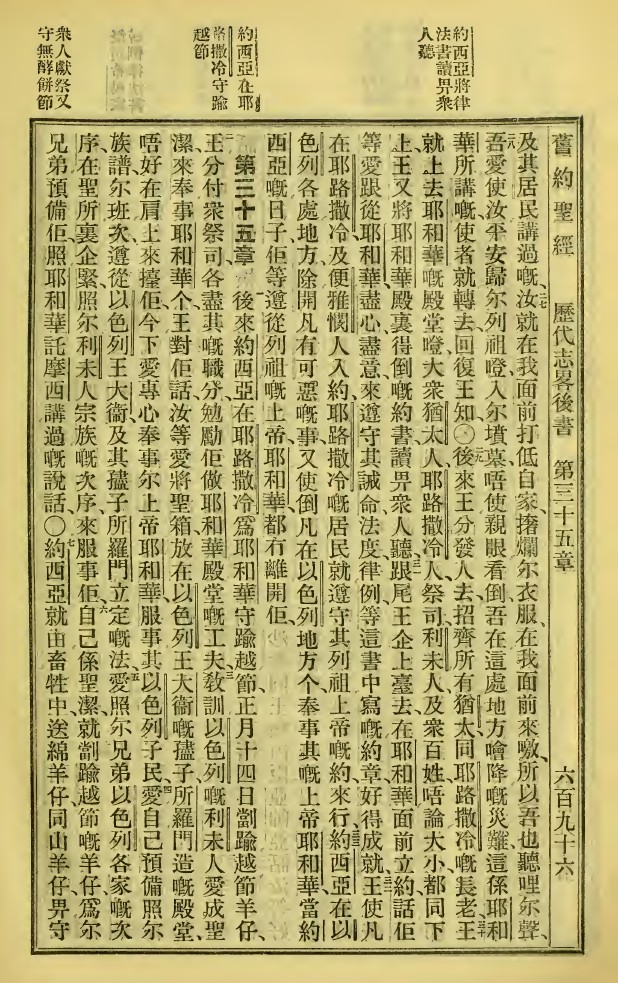 約西亞將律
法書讀畀衆
人聽
約西亞在耶
路撒冷守踰
越節
衆人獻祭又
守無酵餅節
舊約聖經 歷代志畧後書 第三十五章 六百九十六
及其居民講過嘅、汝就在我面前打低自家、撦爛尔衣服、在我面前來噭、所以吾也聽哩尔聲、
吾愛使汝平安歸尔列祖嶝入尔墳墓唔使親眼看倒吾在這處地方噲降嘅災難這係耶和
華所講嘅使者就轉去回復王知〇後來王分發人去招齊所有猶太同耶路撒冷嘅長老王
就上去耶和華嘅殿堂嶝大衆猶太人耶路撒冷人祭司利未人及衆百姓唔論大小都同下
上王又將耶和華殿裏得倒嘅約書讀畀衆人聽跟尾王企上臺去在耶和華面前立約話佢
等愛跟從耶和華盡心盡意來遵守其誡命法度律例等這書中寫嘅約章好得成就王使凡
在耶路撒冷及便雅憫人入約耶路撒冷嘅居民就遵守其列祖上帝嘅約來行約西亞在以
色列各處地方除開凡有可惡嘅事又使倒凡在以色列地方个奉事其嘅上帝耶和華當約
西亞嘅日子佢等遵從列祖嘅上帝耶和華都冇離開佢
第三十五章 後來約西亞在耶路撒冷爲耶和華守踰越節正月十四日劏踰越節羊仔、
王分付衆祭司各盡其嘅職分勉勵佢做耶和華殿堂嘅工夫敎訓以色列嘅利未人愛成聖
潔來奉事耶和華个王對佢話汝等愛將聖箱放在以色列王大衞嘅孻子所羅門造嘅殿堂、
唔好在肩上來擡佢今下愛專心奉事尔上帝耶和華服事其以色列子民愛自己預備照尔
族譜尔班次遵從以色列王大衞及其孻子所羅門立定嘅法愛照尔兄弟以色列各家嘅次
序在聖所裏企緊照尔利未人宗族嘅次序來服事佢自己係聖潔就劏踰越節嘅羊仔爲尔
兄弟預備佢照耶和華託摩西講過嘅說話〇約西亞就由畜牲中送綿羊仔同山羊仔畀守